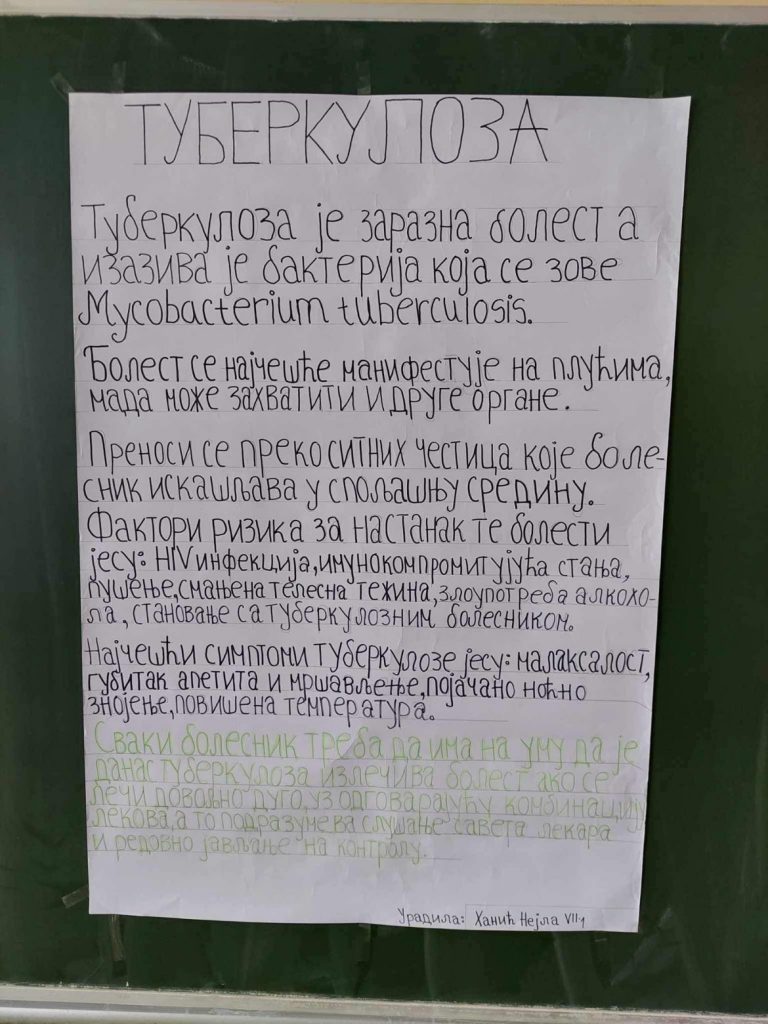 ТУБЕРКУЛОЗА
Туберкулоза је заразна болест а
изазива је бактерија која се зове
Mycobacterium tuberculosis.
Болест се најчешће манифестује на плућима,
мада може захватити и друге органе.
Преноси се преко ситних честица које боле-
сник искашљава у спољашњу средину.
Фактори ризика за настанак те болести
јесу: HIV инфекција, имунокомпромитујућа стања,
пушење, смањена телесна тежина, злоупотреба алкохо-
ла, становање са туберкулозним болесником.
Најчешћи симптоми туберкулозе јесу: малаксалост,
губитак апетита и мршављење, појачано ноћно
знојење, повишена температура.
Сваки болесник треба да има на уму да је
данас туберкулоза излечива болест ако се
лечи довољно дуго, уз одговарајућу комбинацију
лекова, а то подразумева слушање савета лекара
и редовно јављање на контролу.
Урадила: Ханић Нејла VII-1